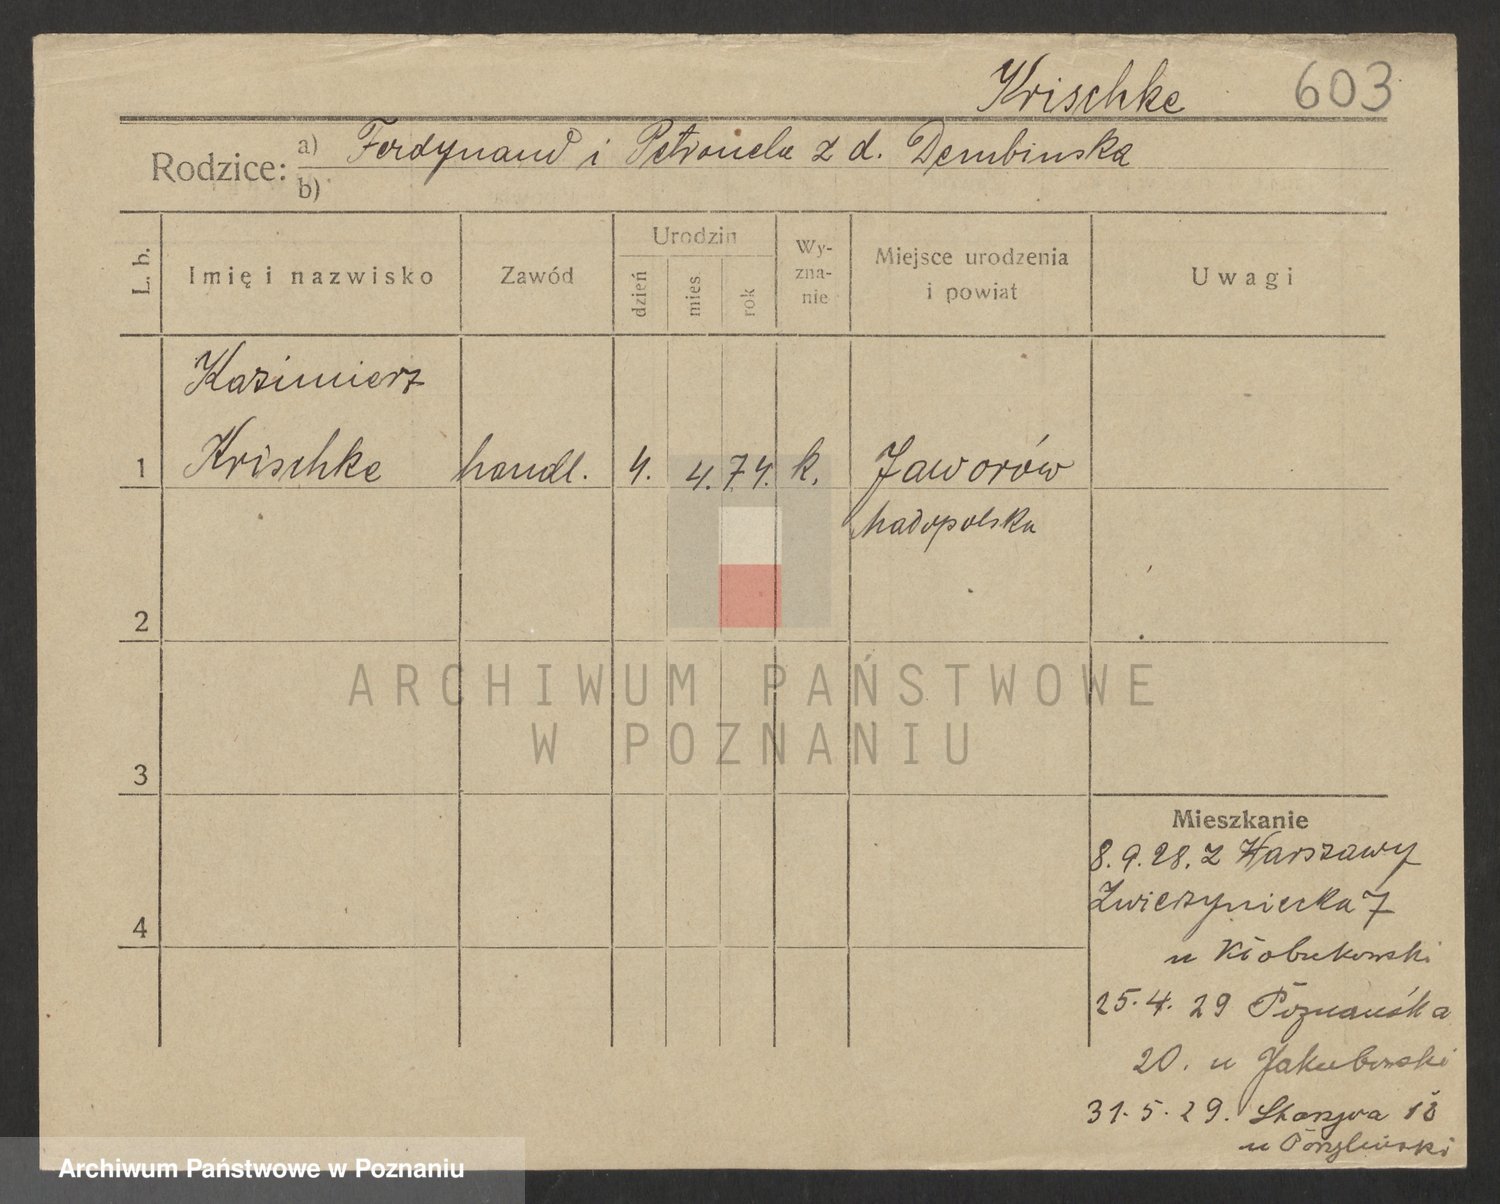 Krischke 603
Rodzice: a) Ferdynand i Petronela z d. Dembinska
b)
L. b.
Imię i nazwisko
Zawód
Urodzin
dzień
mies
rok
Wy-
zna-
nie
Miejsce urodzenia
i powiat
Uwagi
Kazimierz
1 Krischke handl. 4. 4. 74. k. Jaworów
Małopolska
2
ARCHIWUM PAŃSTWOWE
W POZNANIU
3
4
Mieszkanie
8.9.28. z Warszawy
Zwierzyniecka 7
u Kłobukowski
25.4.29 Poznańska
20. u Jakubowski
31.5.29.
u
Archiwum Państwowe w Poznaniu